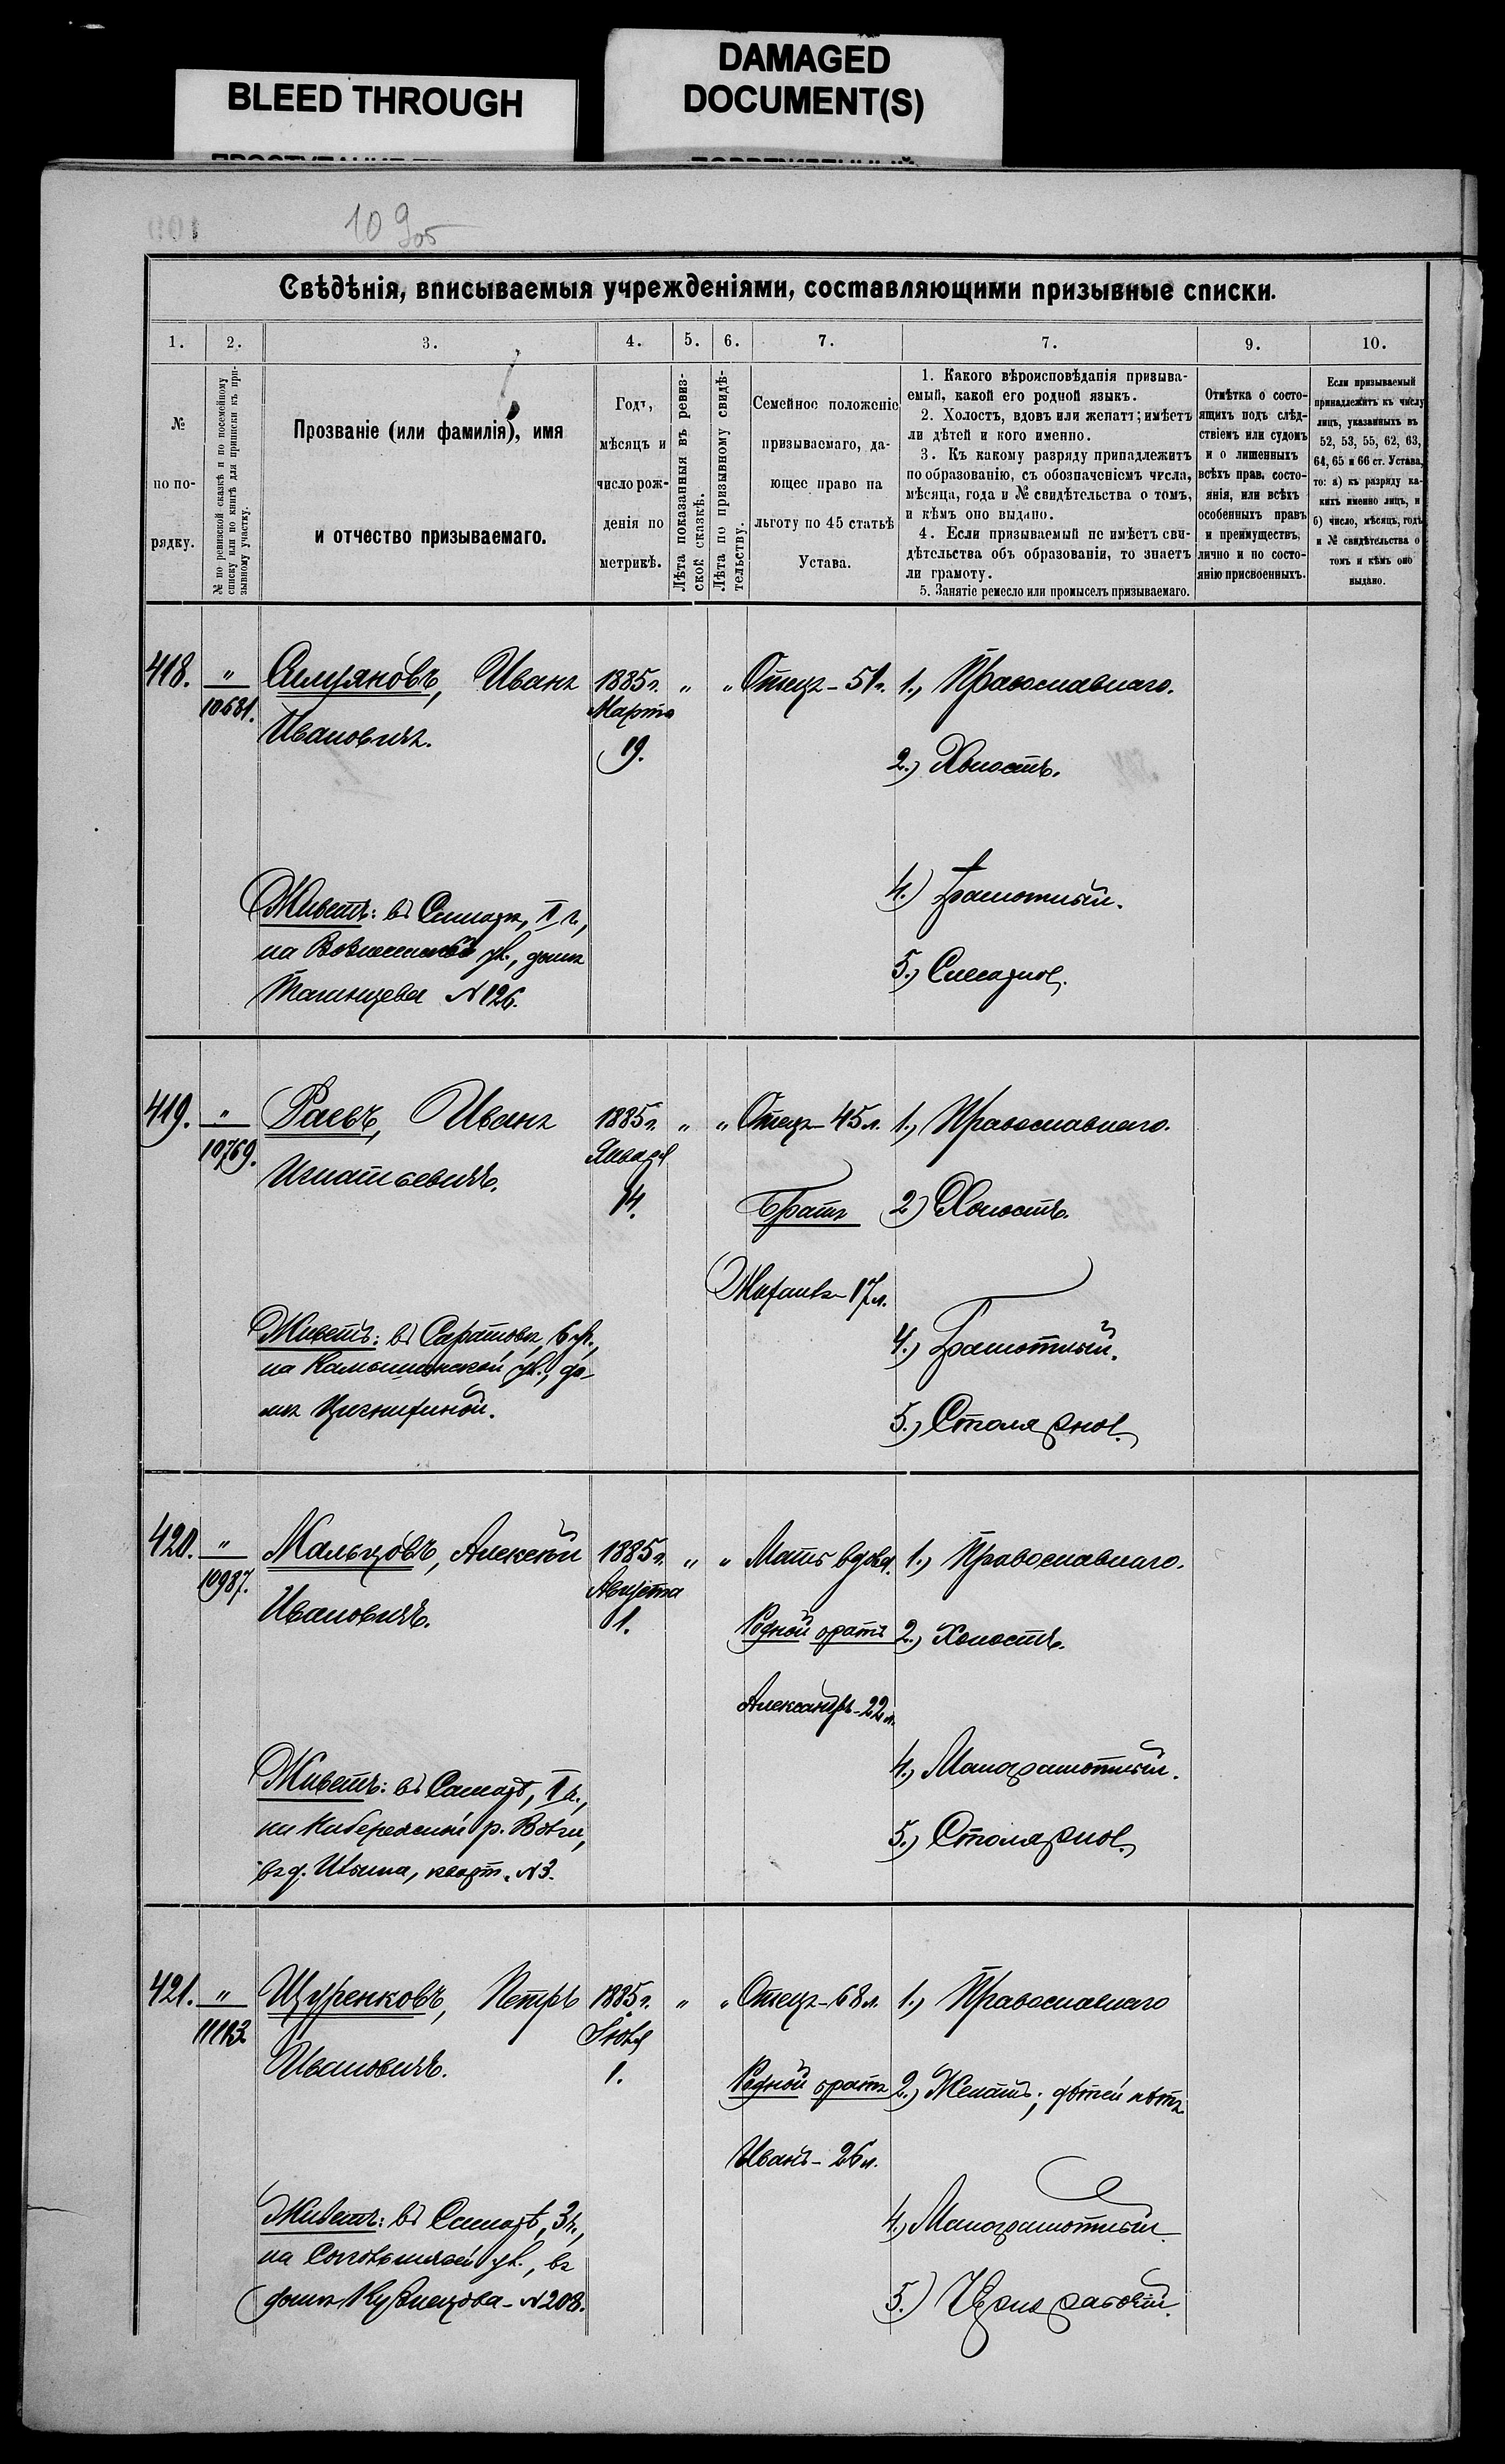 BLEED THROUGH
DAMAGED
DOCUMENT(S)
109 об
Свѣдѣнія, вписываемыя учрежденіями, составляющими призывные списки.
1. 2. 3. 4. 5. 6. 7. 7. 9. 10.
№
по по-
рядку.
№ по ревизской сказкѣ и по посемейному
списку или по книгѣ для приписки къ при-
зывному участку.
Прозваніе (или фамилія), имя
и отчество призываемаго.
Годъ,
мѣсяцъ и
число рож-
денія по
метрикѣ.
Лѣта показанныя въ ревиз-
ской сказкѣ.
Лѣта по призывному свидѣ-
тельству.
Семейное положеніе
призываемаго, да-
ющее право на
льготу по 45 статьѣ
Устава.
1. Какого вѣроисповѣданія призыва-
емый, какой его родной языкъ.
2. Холостъ, вдовъ или женатъ; имѣетъ
ли дѣтей и кого именно.
3. Къ какому разряду принадлежитъ
по образованію, съ обозначеніемъ числа,
мѣсяца, года и № свидѣтельства о томъ,
и кѣмъ оно выдано.
4. Если призываемый не имѣетъ сви-
дѣтельства объ образованіи, то знаетъ
ли грамоту.
5. Занятіе ремесло или промыселъ призываемаго.
Отмѣтка о состо-
ящихъ подъ слѣд-
ствіемъ или судомъ
и о лишенныхъ
всѣхъ прав. состо-
янія, или всѣхъ
особенныхъ правъ
и преимуществъ,
лично и по состо-
янію присвоенныхъ.
Если призываемый
принадлежитъ къ числу
лицъ, указанныхъ въ
52, 53, 55, 62, 63,
64, 65 и 66 ст. Устава,
то: а) къ разряду ка-
кихъ именно лицъ, и
б) число, мѣсяцъ, годъ
и № свидѣтельства о
томъ и кѣмъ оно
выдано.
418. " Иванъ 1885 г. " " Отецъ - 51 г. 1.) Православнаго.
10681. Ивановичъ. Марта
19.
2.) Холостъ.
4.) Грамотный.
Живетъ: въ Самарѣ, II ч.,
на ул., домъ
№ 126.
5.) Слесарное.
419. " Раевъ, Иванъ 1885 г. " " Отецъ - 45 л. 1.) Православнаго.
10769. Игнатьевичъ. Января
14.
Братъ 2.) Холостъ.
Михаилъ - 17 л.
Живетъ: въ Саратовѣ, 6 уч.,
на Камышинской ул., до-
мъ
4.) Грамотный.
5.) Столярное.
420. " Мальцовъ, Алексѣй 1885 г. " " Мать вдова. 1.) Православнаго.
10987. Ивановичъ. Августа
1.
Родной братъ 2.) Холостъ.
Александръ - 22 л.
4.) Малограмотный.
Живетъ: въ Самарѣ, II ч.,
на Набережной р. Волги,
въ д. Ильина, кварт. № 3.
5.) Столярное.
421. " Щуренковъ, Петръ 1885 г. " " Отецъ - 68 л. 1.) Православнаго
11123 Ивановичъ. Іюля
1.
Родной братъ 2.) Женатъ; дѣтей нѣтъ.
Иванъ - 26 л.
4.) Малограмотный.
Живетъ: въ Самарѣ, 3 ч.,
на ул., въ
домѣ Кузнецова - № 208.
5.) Чернорабочій.